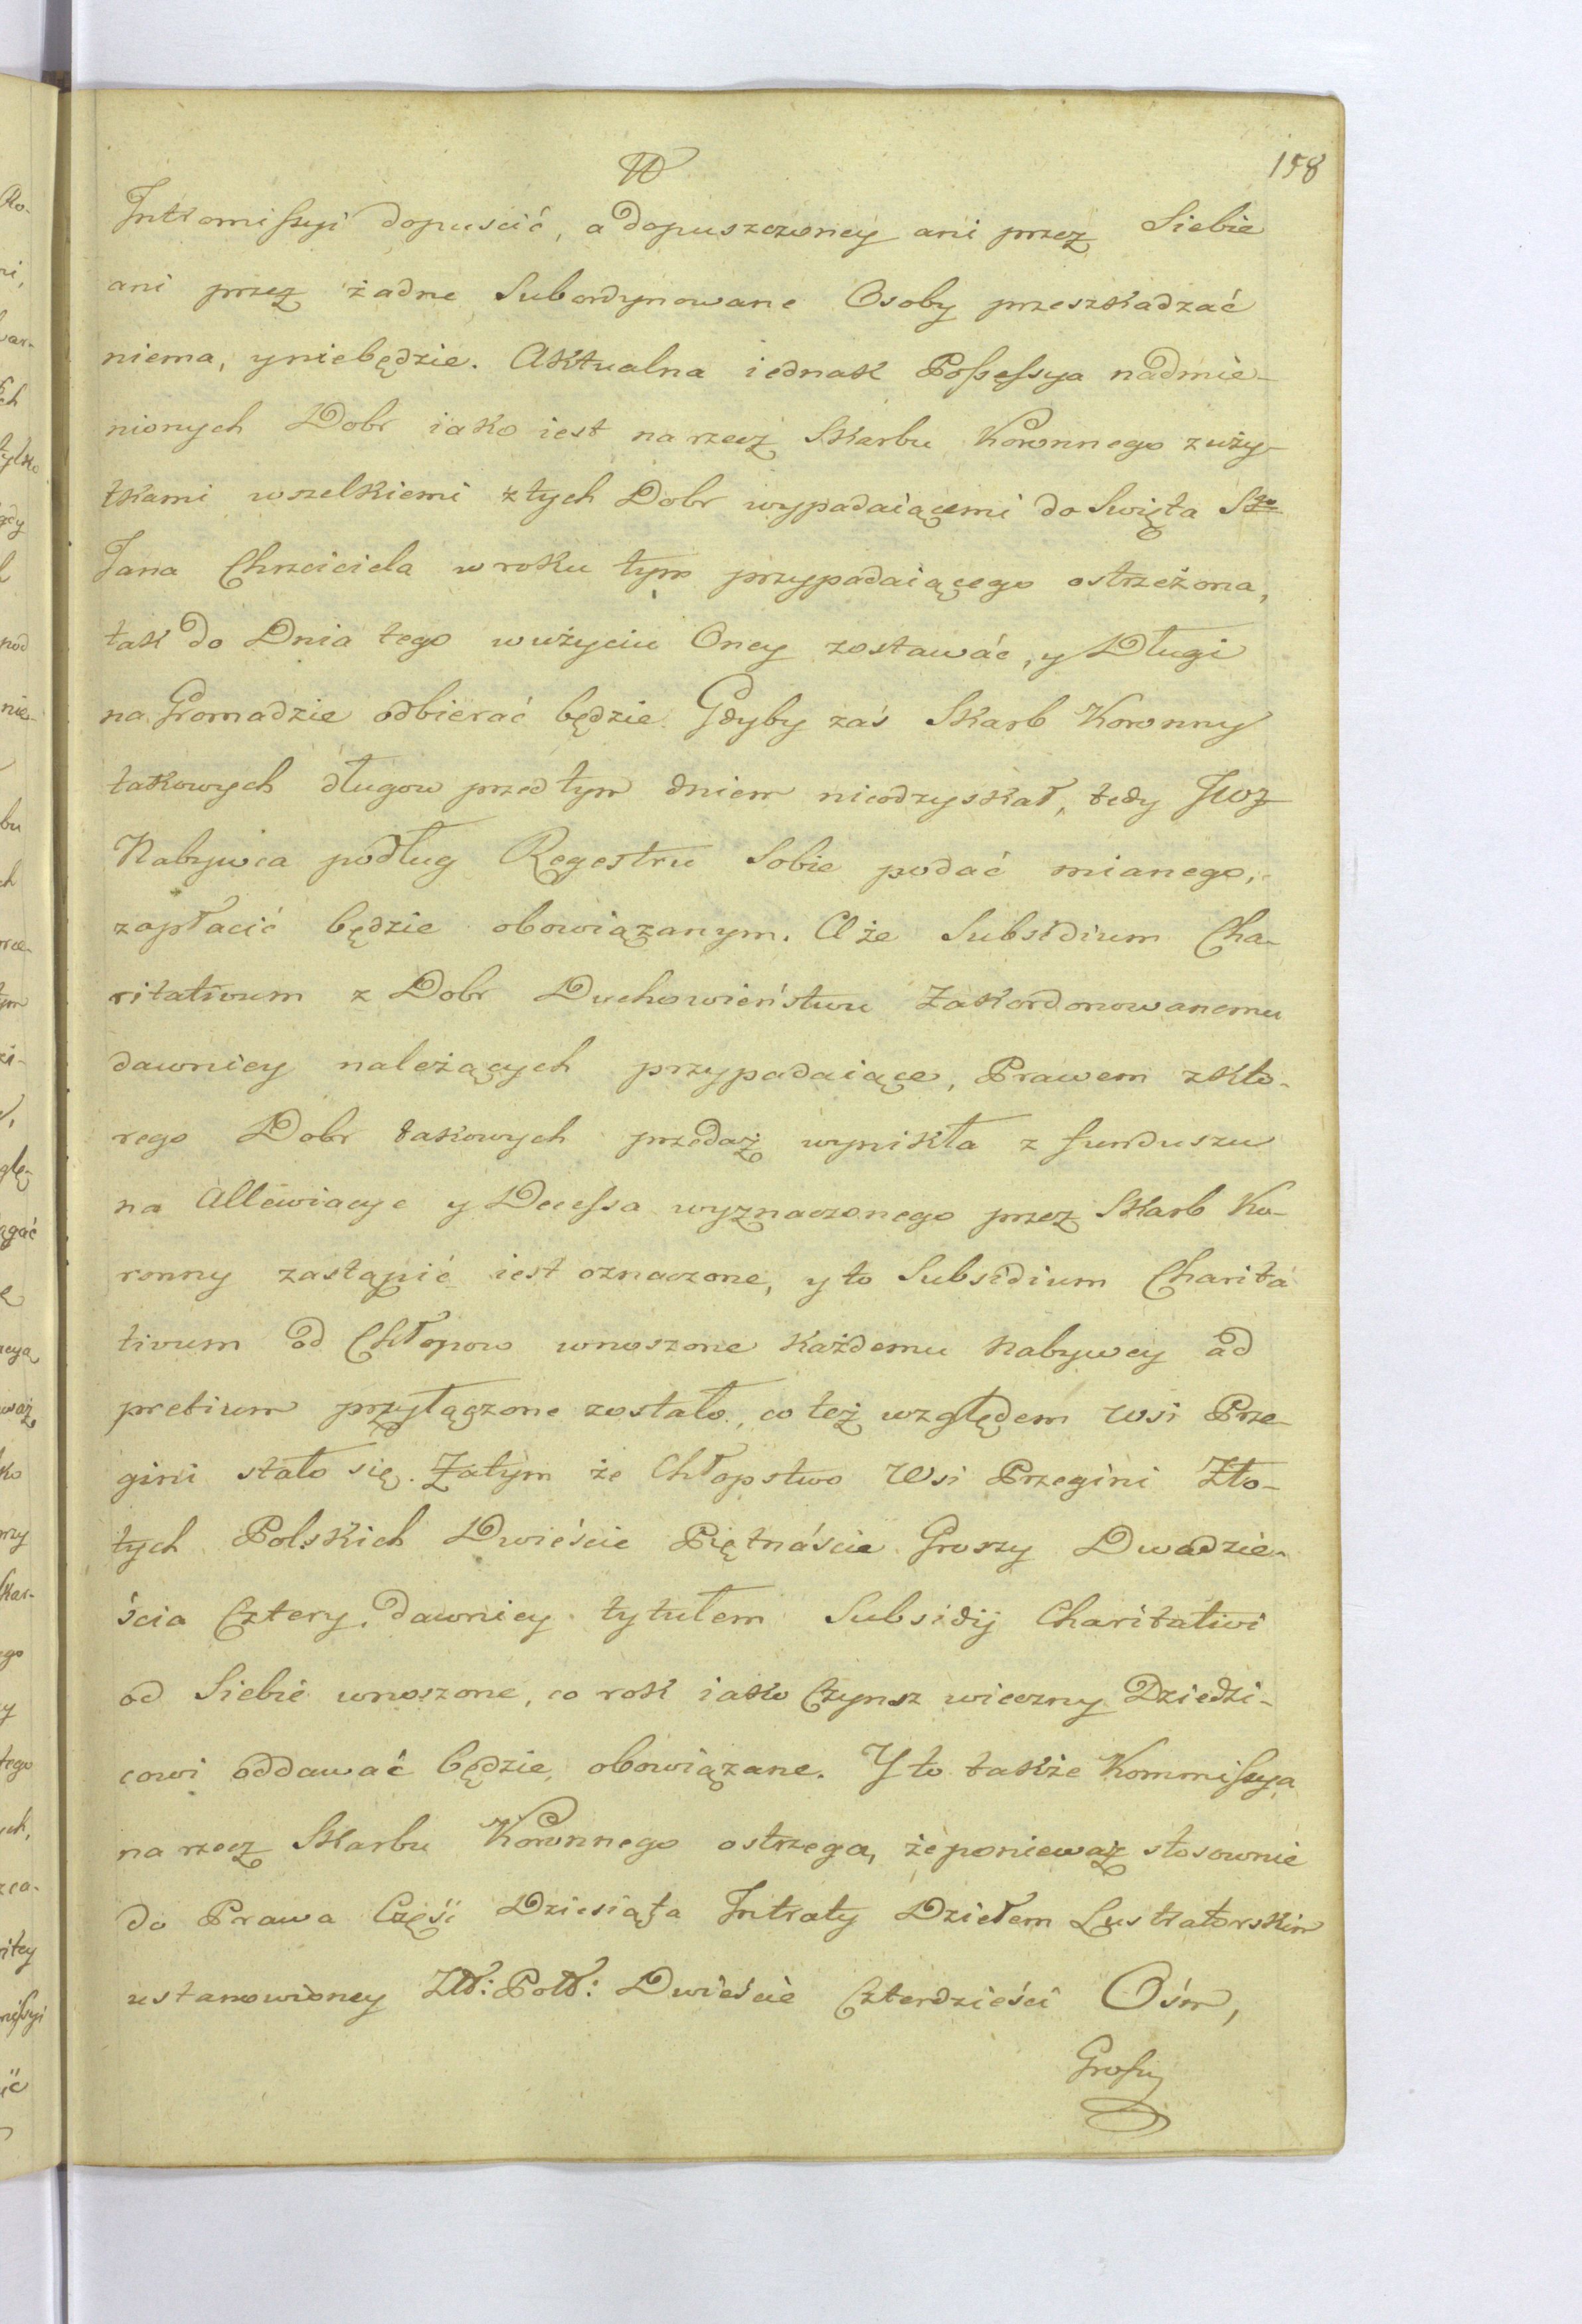 158
Intromissyi dopuscić, a dopuszczoney ani przez Siebie
ani przez żadne Subordynowane Osoby przeszkadzać
niema, y niebędzie. Aktualna iednak Possessya nadmie-
nionych Dobr iako iest na rzecz Skarbu Koronnego z uży-
tkami wszelkiemi z tych Dobr wypadaiącemi do Swięta Sgo
Jana Chrzciciela w roku tym przypadaiącego ostrzeżona,
tak do Dnia tego w użyciu Oney zostawać, y Długi
na Gromadzie odbierać będzie. Gdyby zaś Skarb Koronny
takowych długow przed tym dniem nieodzyskał, tedy JWz
Nabywca podług Regestru Sobie podać mianego,
zapłacić będzie obowiązanym. A że Subsidium Cha-
ritativum z Dobr Duchowieństwu Zakordonowanemu
dawniey należących przypadaiące, Prawem z kto-
rego Dobr takowych przedaż wynikła z funduszu
na Allewiacye y Decessa wyznaczonego przez Skarb Ko-
ronny zastąpić iest oznaczone, y to Subsidium Charita
tivum od Chłopow wnoszone każdemu Nabywcy ad
pretium przyłączone zostało, co też względem Wsi Prze-
gini stało się. Zatym że Chłopstwo Wsi Przegini Zło-
tych Polskich Dwieście Piętnaście Groszy Dwadzie-
ścia Cztery, dawniey tytułem Subsidij Charitativi
od Siebie wnoszone, co rok iako Czynsz wieczny Dziedzi-
cowi oddawać będzie obowiązane. Y to także Kommissya
na rzecz Skarbu Koronnego ostrzega, że ponieważ stosownie
do Prawa Część Dziesiąta Intraty Dziełem Lustratorskim
ustanowioney Złł: Poll: Dwieście Czterdzieści Ośm,
Groszy